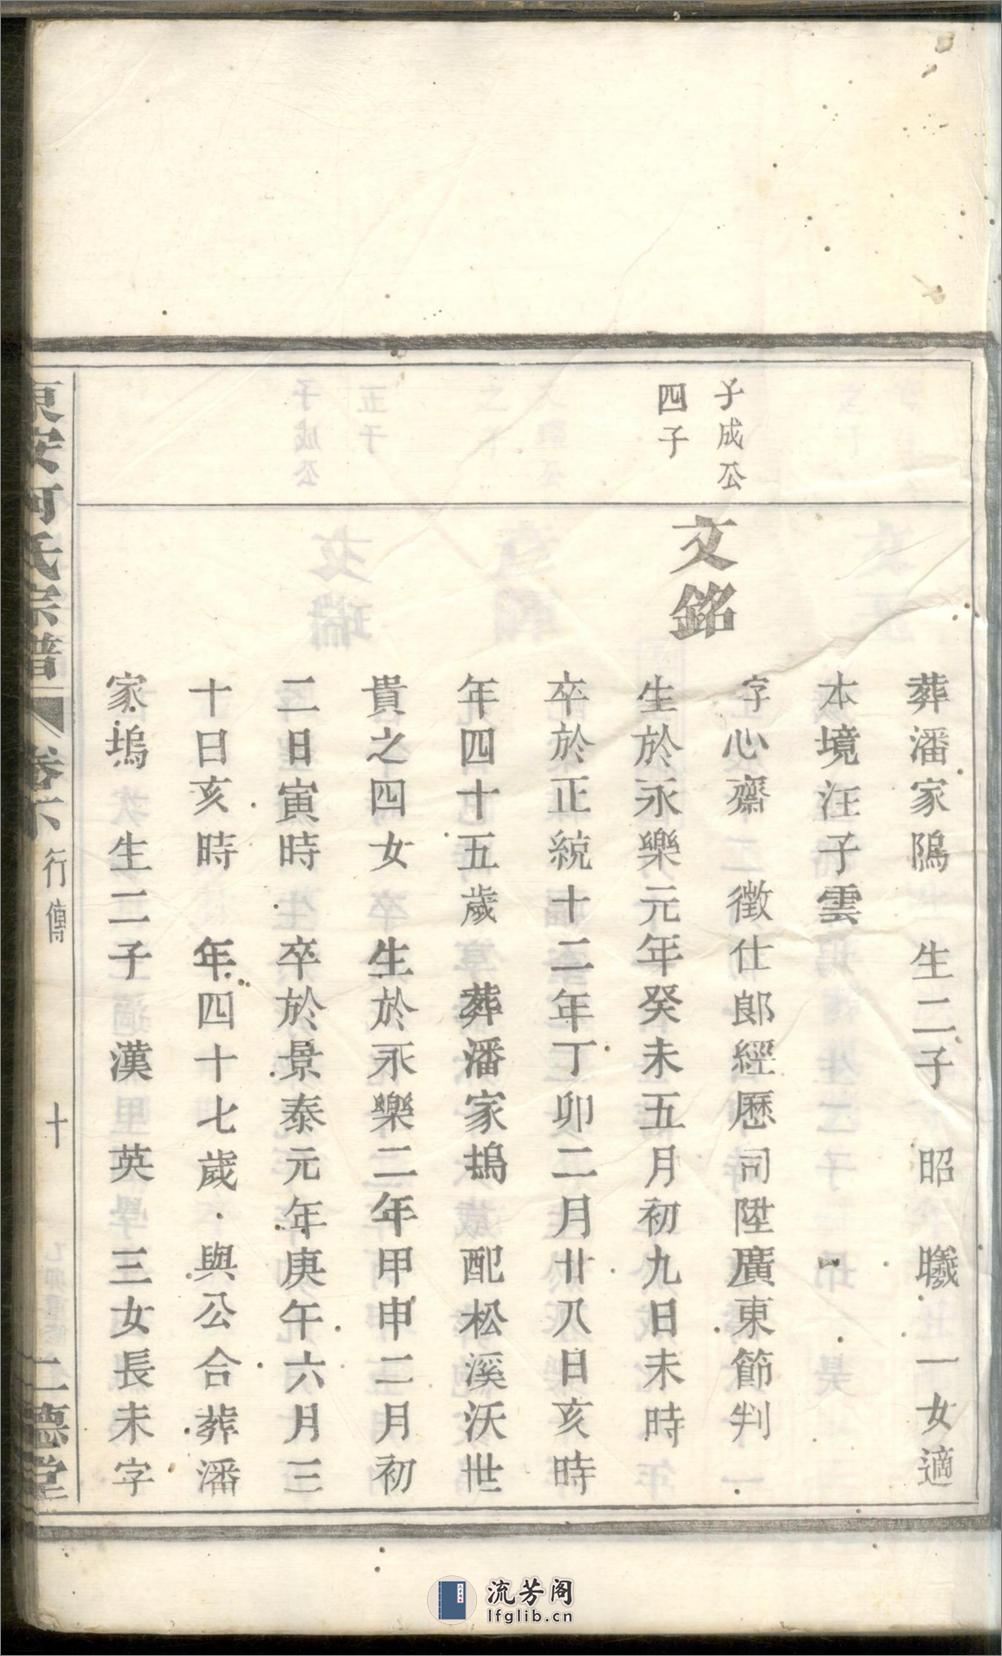 葬潘家隝　生二子　昭　曦　一女適
本境汪子雲
子成公
四子
文銘
字心齋　徵仕郎經歷司陞廣東節判
生於永樂元年癸未五月初九日未時
卒於正統十二年丁卯二月廿八日亥時
年四十五歲　葬潘家塢　配松溪沃世
貴之四女　生於永樂二年甲申二月初
二日寅時　卒於景泰元年庚午六月三
十日亥時　年四十七歲　與公合葬潘
家塢　生二子　漢　英　三女長未字
東安何氏宗譜　卷六　行傳　十　一德堂
流芳阁
lfglib.cn